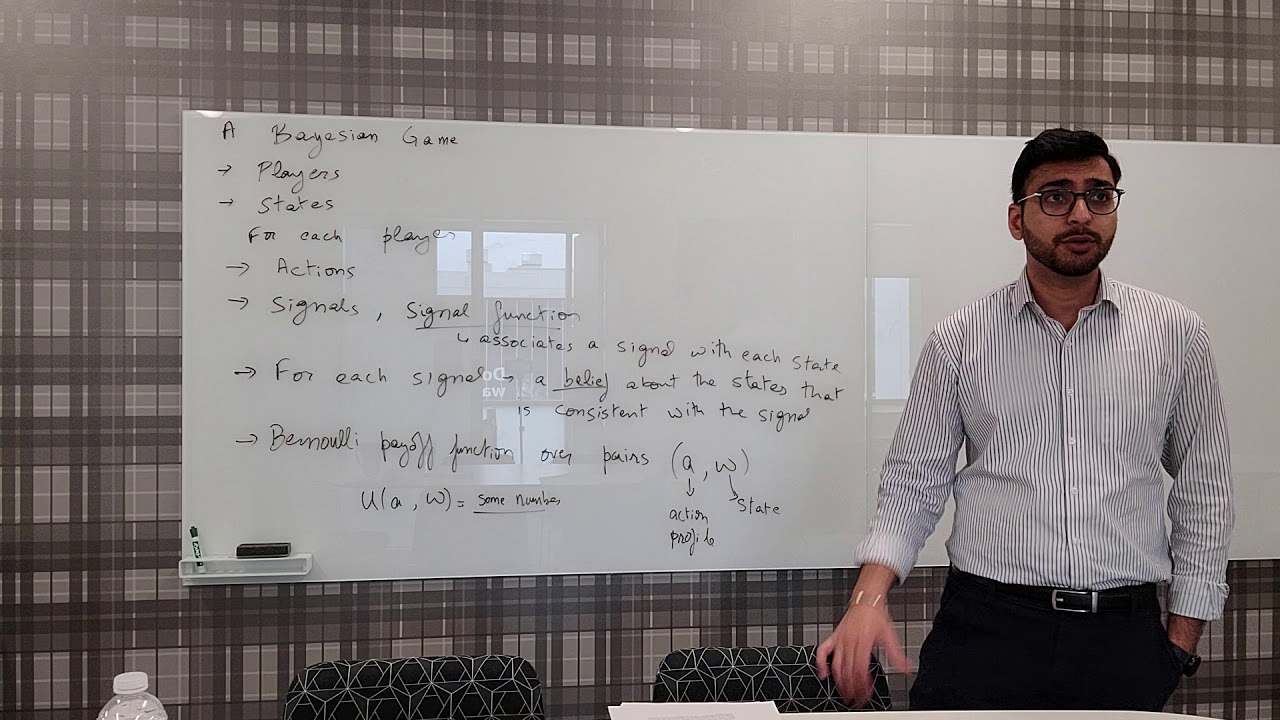 A Bayesian Game
→ Players
→ States
For each player
→ Actions
→ Signals, Signal function
↳ associates a signal with each state
→ For each signal, a belief about the states that
is consistent with the signal
→ Bernoulli payoff function over pairs (a, ω)
U(a, ω) = some number
action profile
State